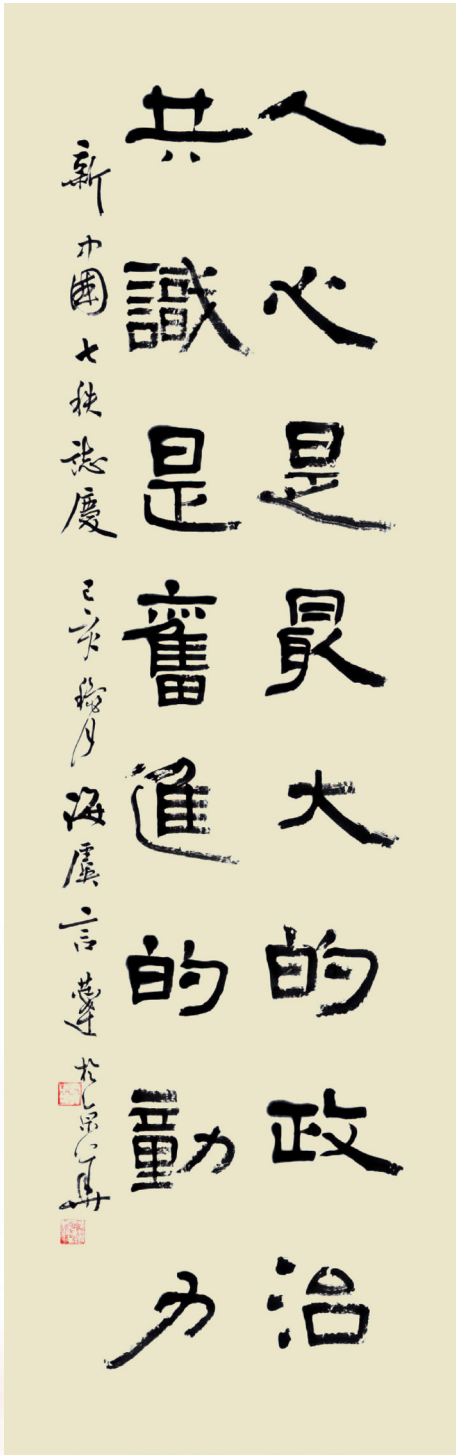 人心是最大的政治
共識是奮進的動力
新中國七秩誌慶 己亥 月 海虞言 於京華